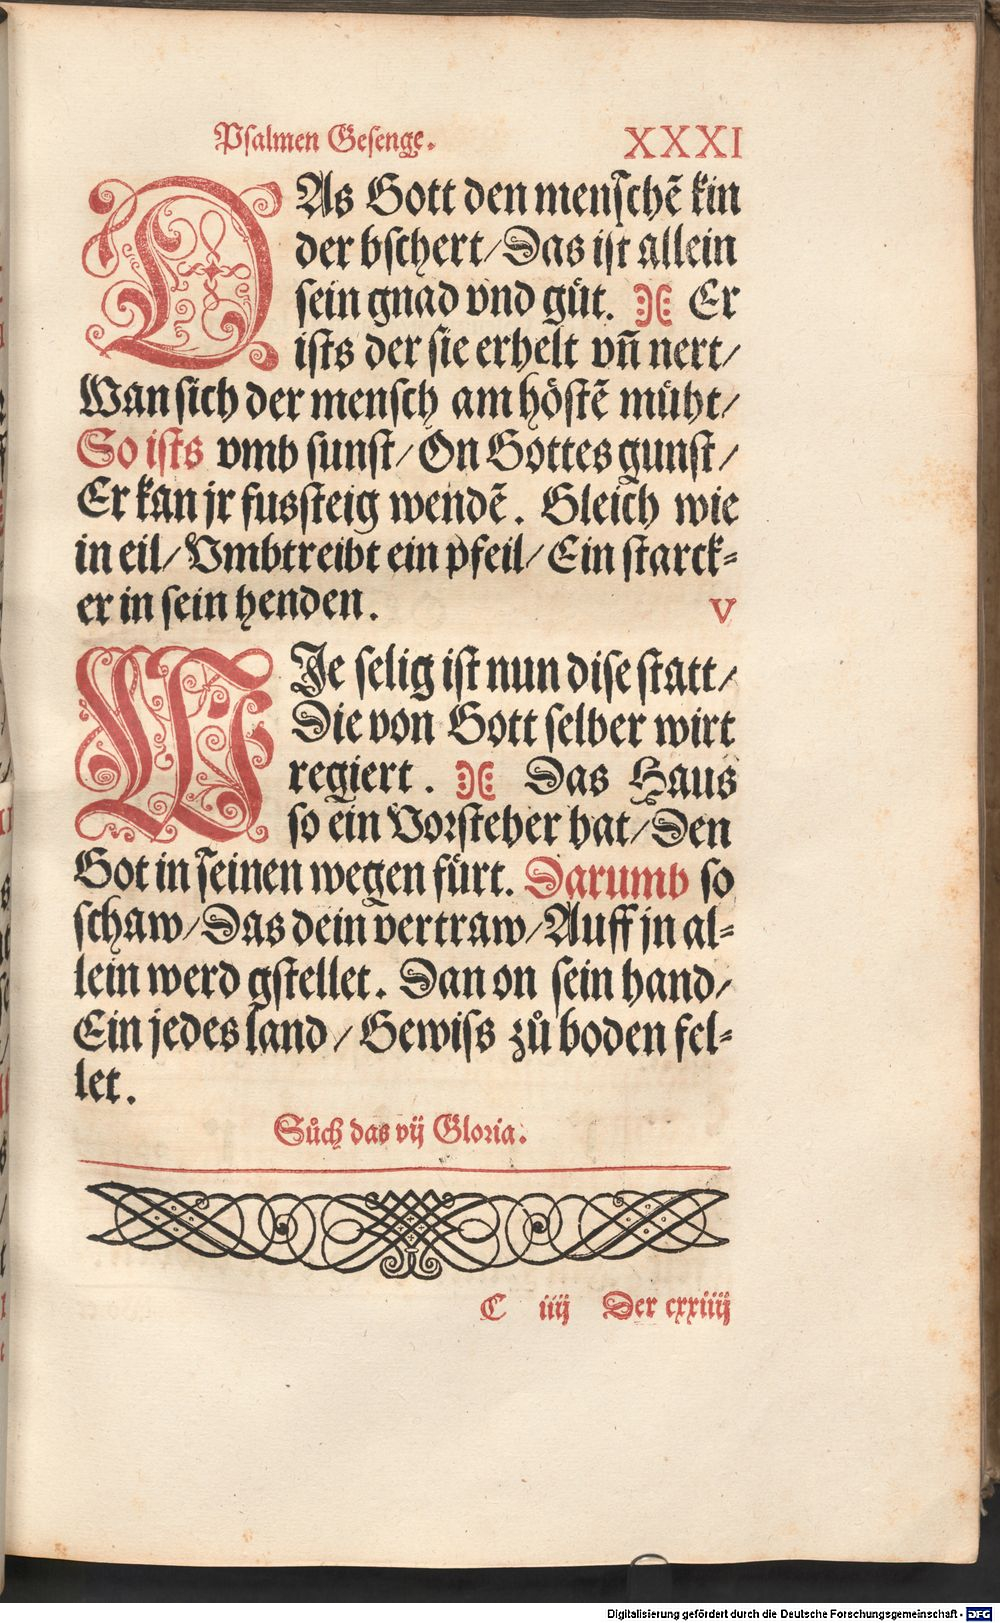 Psalmen Gesenge. XXXI
DAs Gott den menschē kin
der bschert/Das ist allein
sein gnad vnd guͤt. Er
ists der sie erhelt vñ nert/
Wan sich der mensch am hoͤstē muͤht/
So ists vmb sunst/On Gottes gunst/
Er kan jr fussteig wendē. Gleich wie
in eil/Vmbtreibt ein pfeil/Ein starck-
er in sein henden. V
WJe selig ist nun dise statt/
Die von Gott selber wirt
regiert. Das Haus
so ein Vorsteher hat/Den
Got in seinen wegen fuͤrt. Darumb so
schaw/Das dein vertraw/Auff jn al-
lein werd gstellet. Dan on sein hand/
Ein jedes land/Gewiss zů boden fel-
let.
Sůch das vij Gloria.
C iiij Der cxxiiij
Digitalisierung gefördert durch die Deutsche Forschungsgemeinschaft - DFG